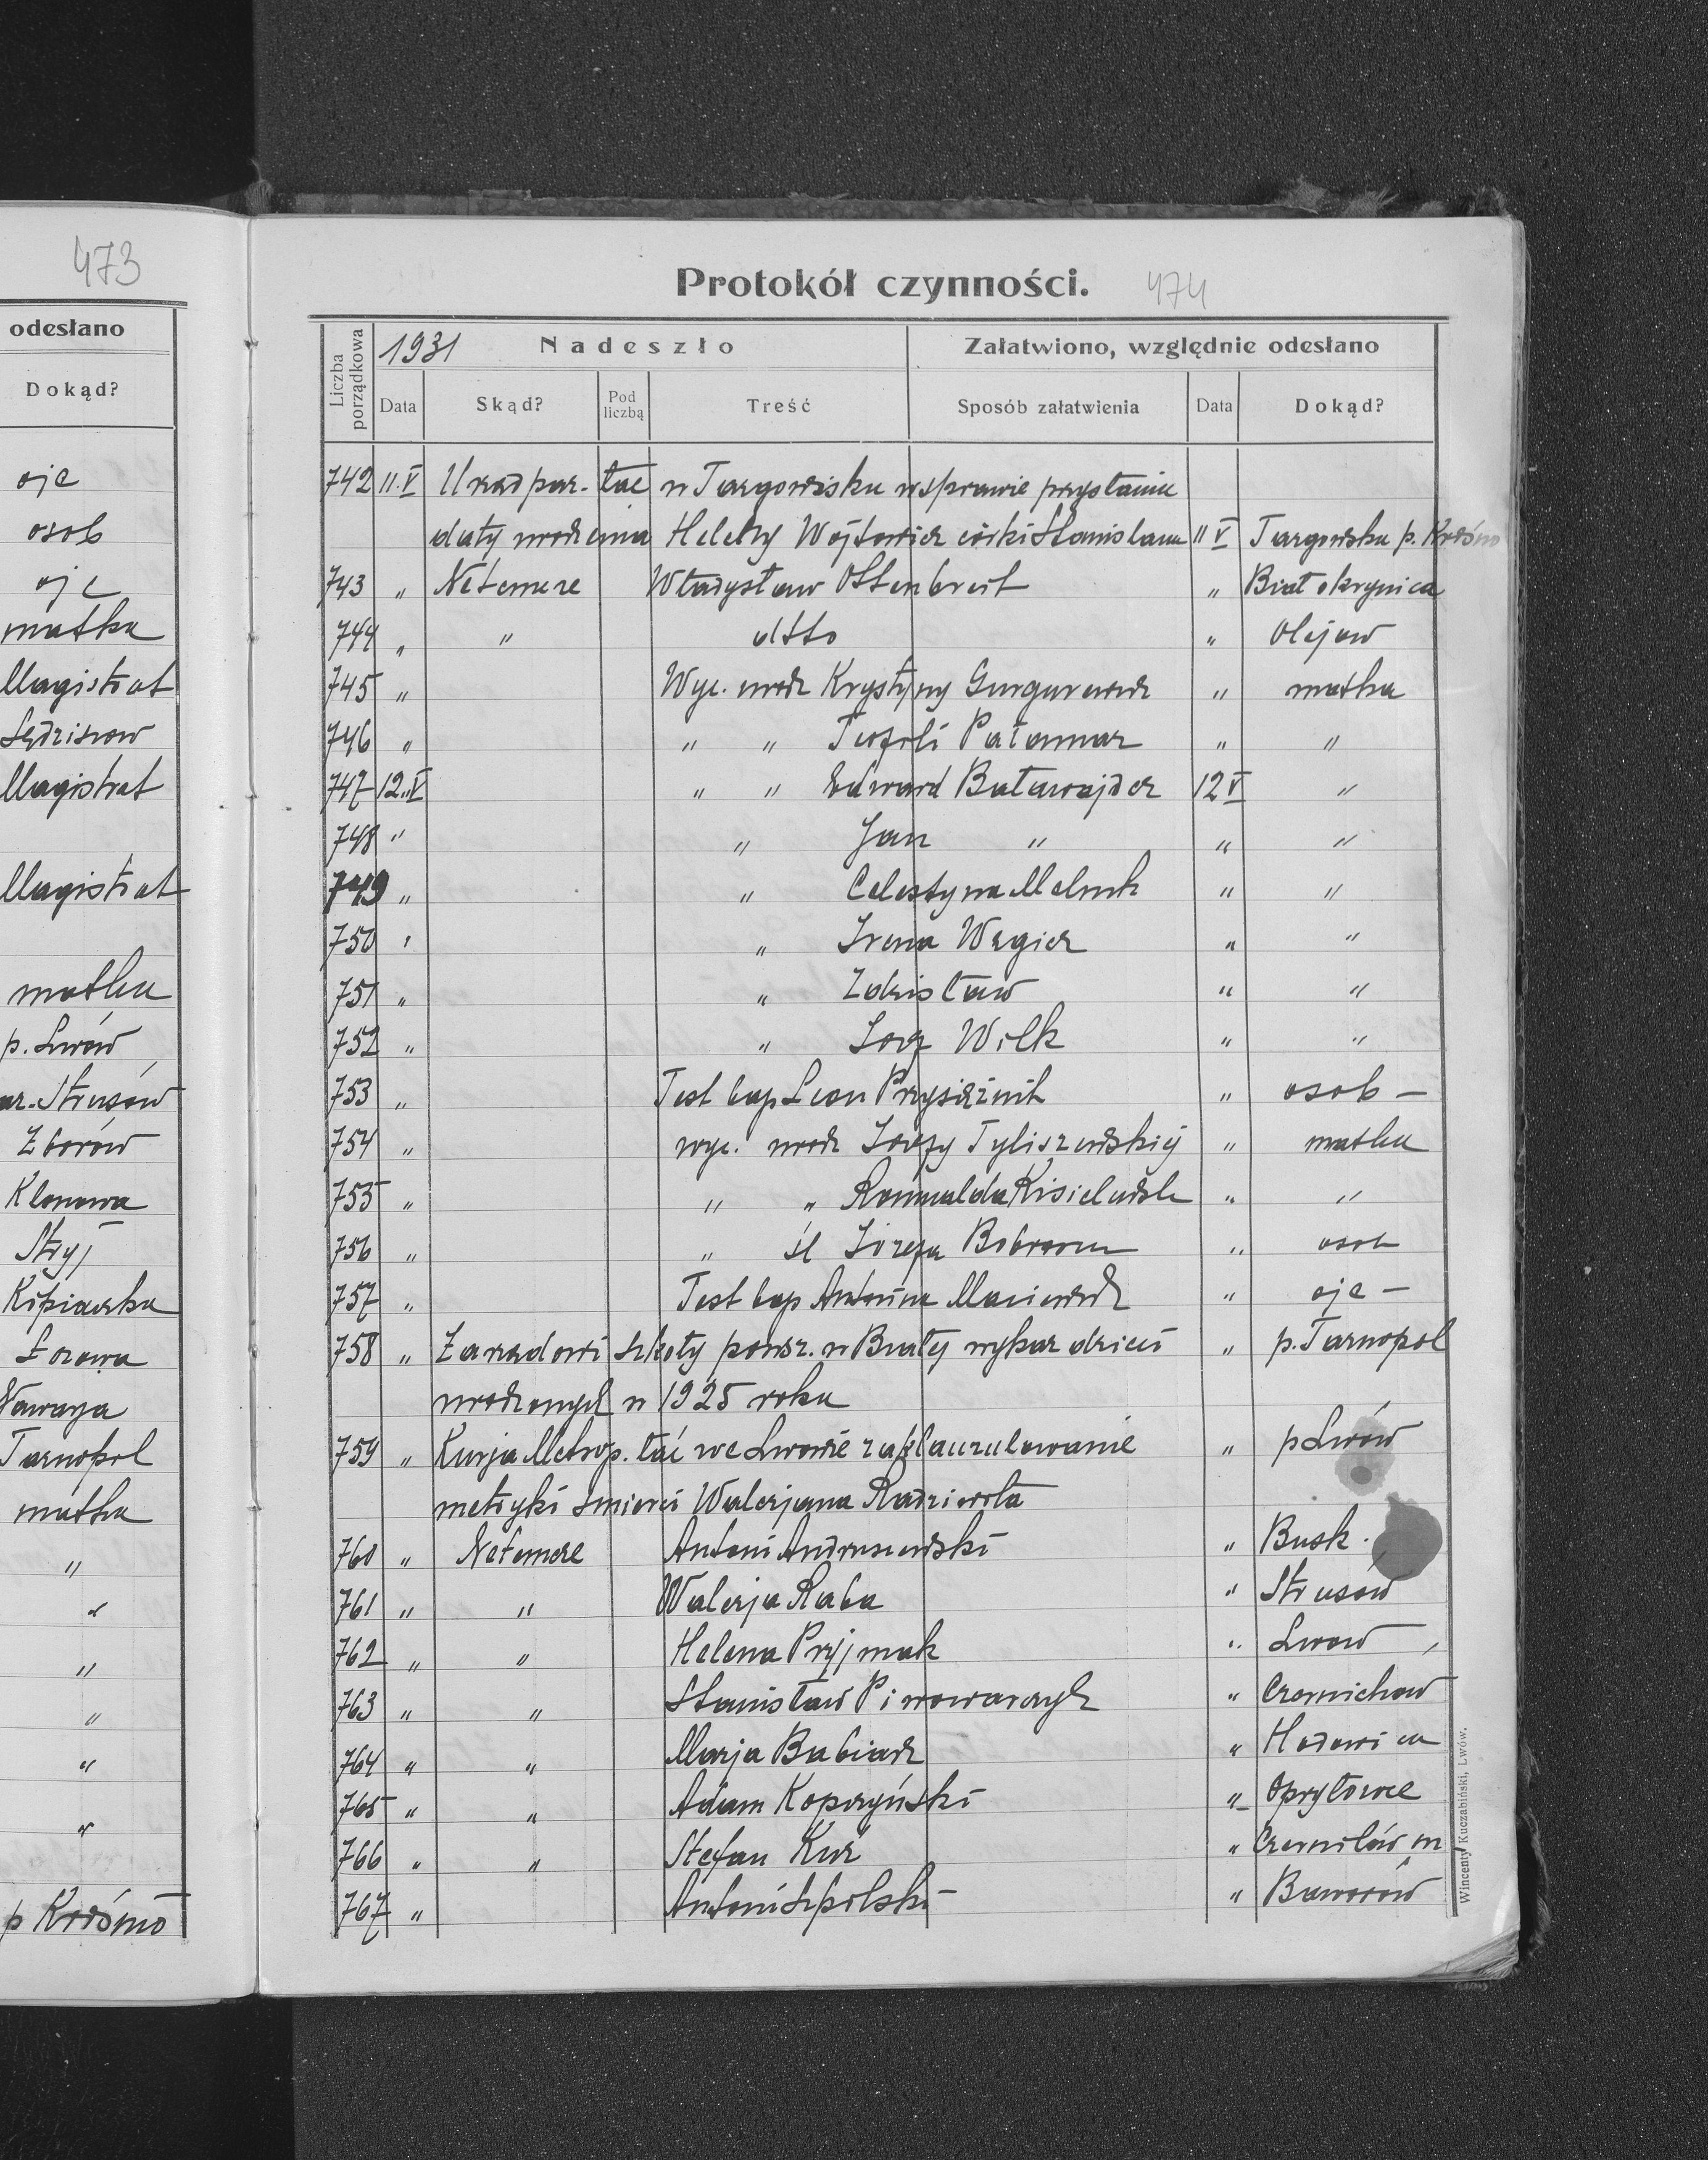 473
odesłano
Dokąd?
ojc
osob
ojc
matka
Magistrat
Sędziszow
Magistrat
Magistrat
matka
p. Lwów
par. Strusów
Zborów
Klonowa
Stryj
Łozowa
Nawarja
Tarnopol
matka
"
"
"
"
"
"
p Krosno
Protokół czynności. 474
Liczba porządkowa
1931 Nadeszło
Załatwiono, względnie odesłano
Data Skąd? Pod liczbą Treść Sposób załatwienia Data Dokąd?
742 11.V Urząd par. łac w Targowisku w sprawie przysłania
daty urodzenia Heleny Wójtowicz córki Stanisława 11 V Targowisku p. Krosno
743 " Ne temere Władysław Ottenbreit " Białokrynica
744 " " dtto " Olejow
745 " Wyc. urodz Krystyny " matka
746 " " " Teofili Pałamar " "
747 12.V " " Edward Baławajder 12 V "
748 " " Jan " " "
749 " " Celestyna Melnik " "
750 " " Irena Węgier " "
751 " " Zdzisław " "
752 " " Józef Wilk " "
753 " Test bap Leon Przysiężnik " osob -
754 " wyc. urodz Józefy Tyliszewskiej " matka
755 " " " Romualda Kisielewsk " "
756 " " śl Józefa " osob
757 " Test bap Antonina " ojc -
758 " Zarządowi szkoły powsz. w Białej wykaz dzieci " p. Tarnopol
urodzonych w 1925 roku
759 " Kurja Metrop. łać we Lwowie zaklauzulowanie " p Lwów
metryki śmierci Walerjana Radziwiła
760 " Ne temere Antoni Andruszewski " Busk.
761 " " Walerja Raba " Strusów
762 " " Helena Pryjmak " Lwow
763 " " Stanisław Piwowarczyk " Czernichow
764 " " Marja Babiarz "
765 " " Adam Kopczyński " Opryłowce
766 " " Stefan Kuź " Czernilów m
767 " Antoni Szpolski " Baworów
Wincenty Kuczabiński, Lwów.